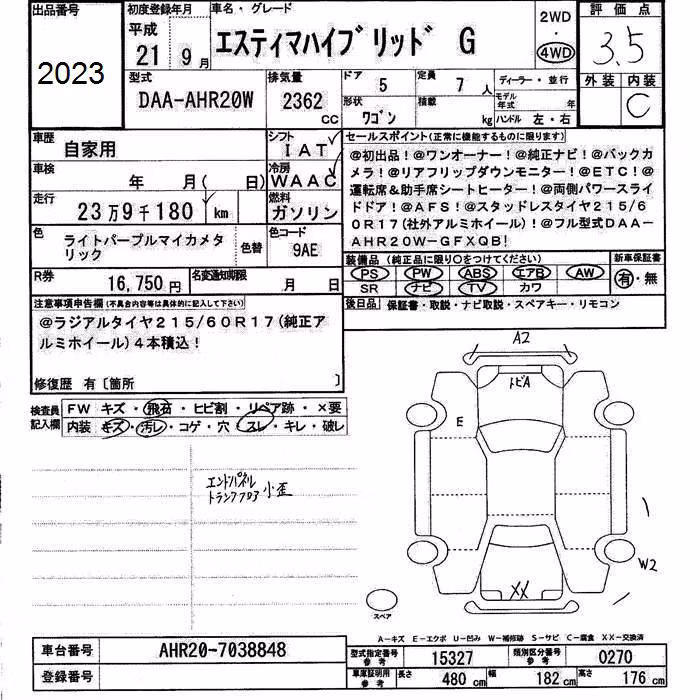 出品番号
2023
初度登録年月
平成
21 9月
車名・グレード
エスティマハイブリッド G
2WD
・
4WD
評価点
3.5
外装 内装
C
型式
DAA-AHR20W
排気量
2362
CC
ドア
5
定員
7 人
ディーラー・並行
形状
ワゴン
積載
kg
モデル年式 年
ハンドル 左・右
車歴
自家用
シフト
IAT
車検
年 月( 日)
冷房
WAAC
走行
23万9千180 km
燃料
ガソリン
色
ライトパープルマイカメタリック
色替
色コード
9AE
R券
16,750円
名変通知期限
月 日
セールスポイント(正常に機能するものに限ります)
@初出品!@ワンオーナー!@純正ナビ!@バックカ
メラ!@リアフリップダウンモニター!@ETC!@
運転席&助手席シートヒーター!@両側パワースライ
ドドア!@AFS!@スタッドレスタイヤ215/6
0R17(社外アルミホイール)!@フル型式DAA-
AHR20W-GFXQB!
装備品(純正品に限り○をつけてください)
PS PW ABS エアB AW
SR ナビ TV カワ
新車保証書
有・無
後日品 保証書・取説・ナビ取説・スペアキー・リモコン
注意事項申告欄(不具合内容等は具体的に記入して下さい)
@ラジアルタイヤ215/60R17(純正ア
ルミホイール)4本積込!
修復歴 有〔箇所 〕
検査員記入欄
FW キズ・飛石・ヒビ割・リペア跡・×要
内装 キズ・汚レ・コゲ・穴・スレ・キレ・破レ
エンドパネル
トランクフロア 小歪
A2
トビA
E
W2
XX
スペア
A-キズ E-エクボ U-凹み W-補修跡 S-サビ C-腐食 XX-交換済
車台番号
AHR20-7038848
登録番号
型式指定番号
参考
15327
類別区分番号
参考
0270
車庫証明用
参考
長さ
480 cm
幅
182 cm
高さ
176 cm